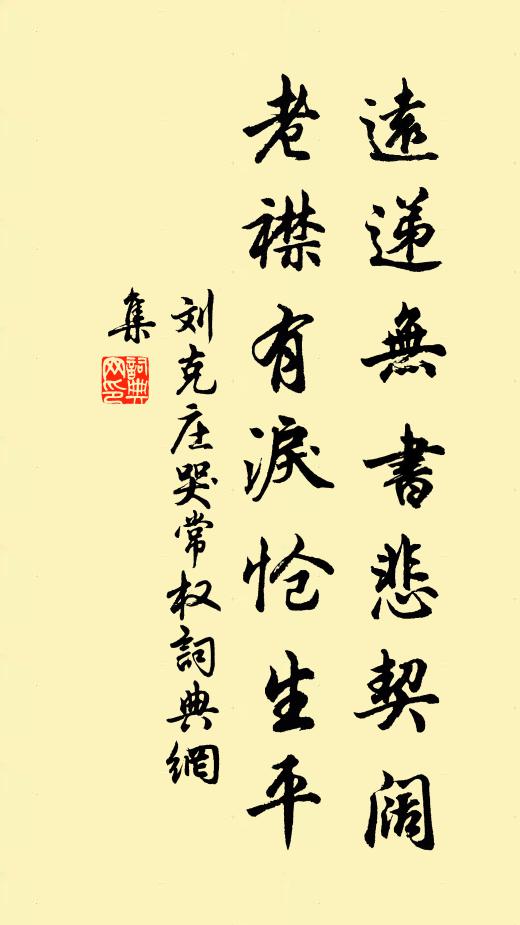 遠递無書悲契阔
老襟有淚怆生平
刘克庄哭常权詞典網
集
詞典網印